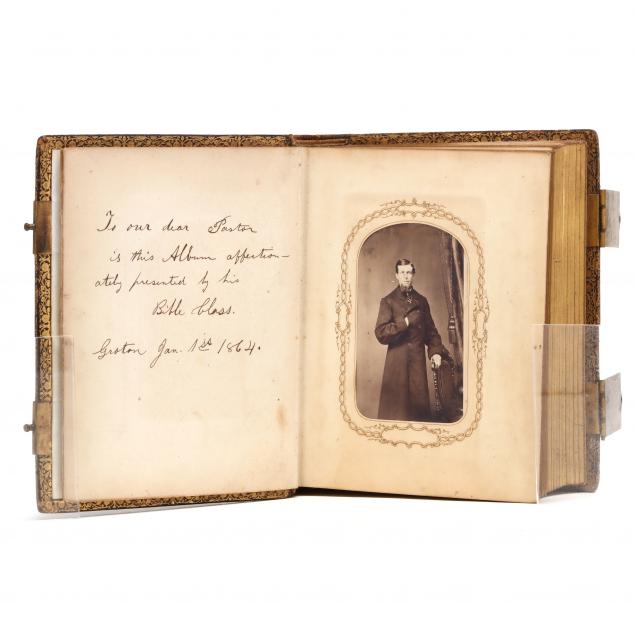 To our dear Pastor
is this Album affection-
ately presented by his
Bible Class.
Groton Jan. 1st 1864.